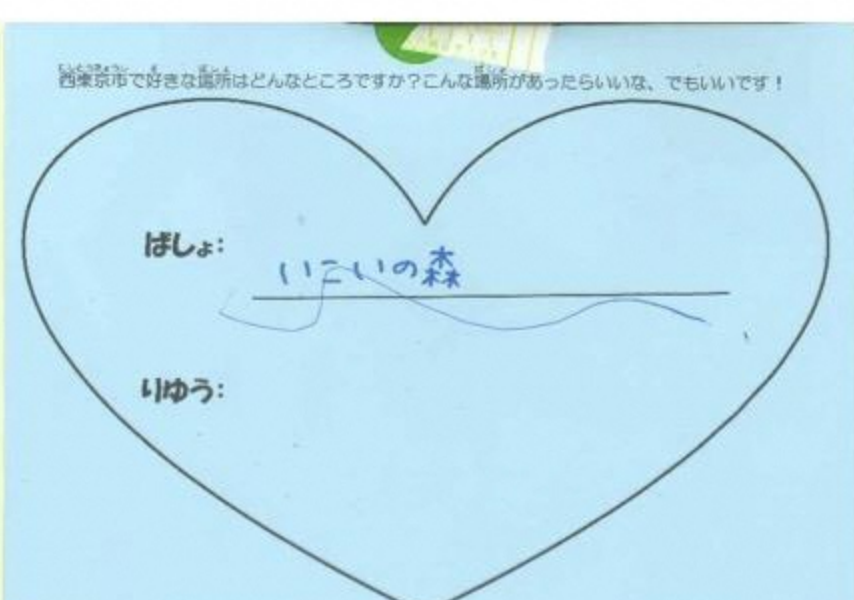 西東京市で好きな場所はどんなところですか？こんな場所があったらいいな、でもいいです！
ばしょ:
いこいの森
りゆう: